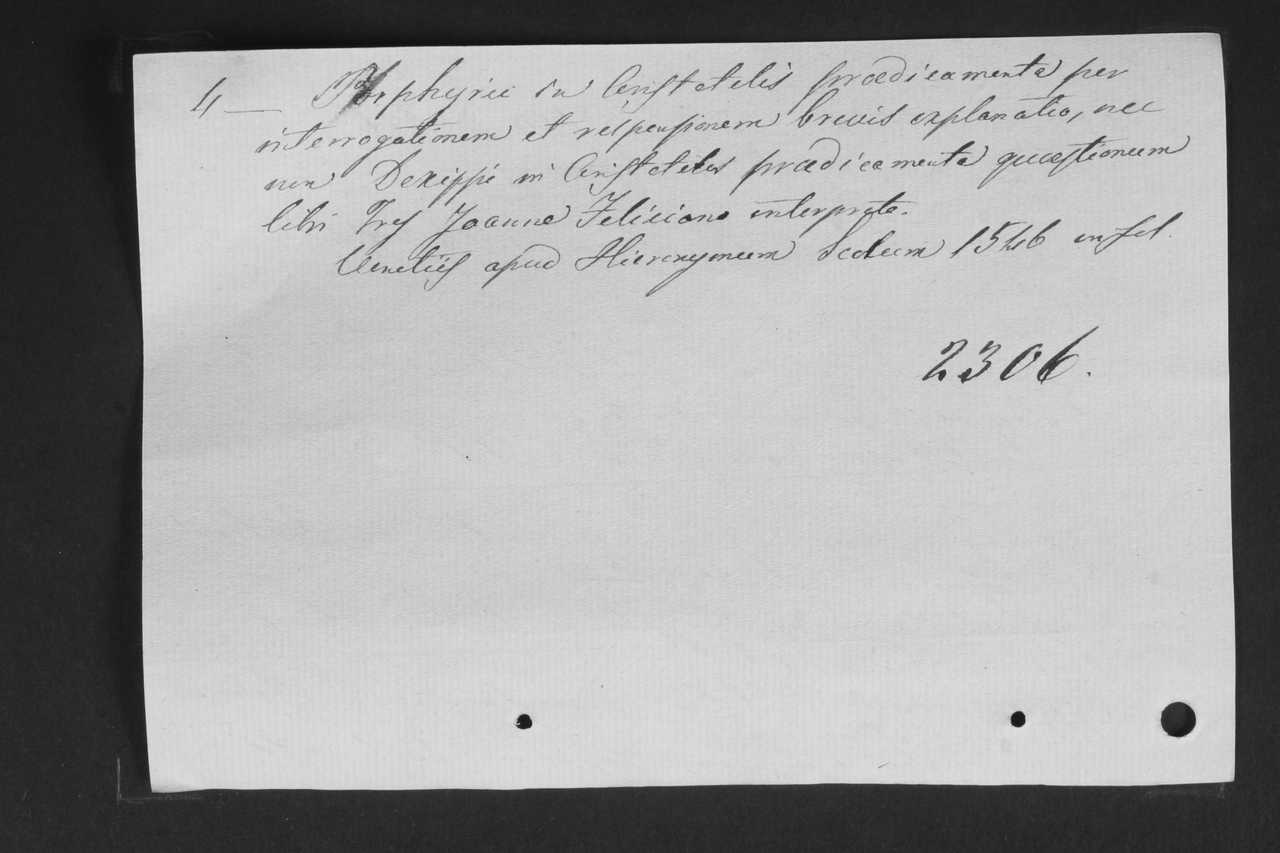 4 — Porphyrii in Aristotelis prædicamenta per
interrogationem et responsionem brevis explanatio, nec
non Dexippi in Aristoteles prædicamenta quæstionum
libri Tres Joanne Feliciano interprete.
Venetiis apud Hieronymum Scotum 1546 in fol.
2306.